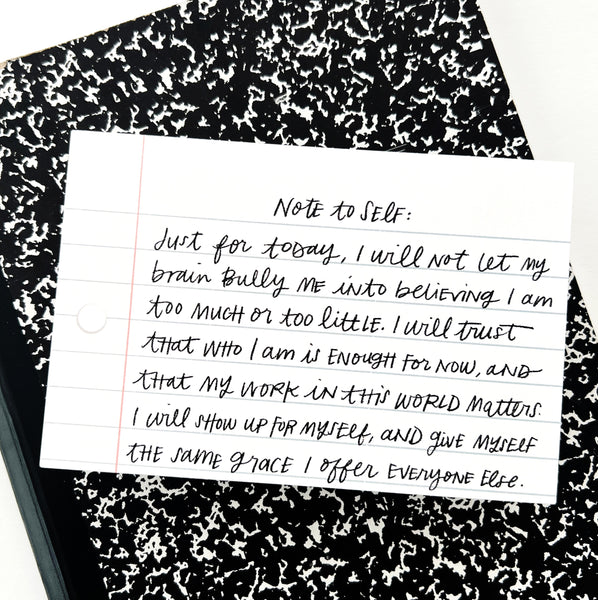 Note to Self:
Just for today, I will not let my
brain bully me into believing I am
too much or too little. I will trust
that who I am is enough for now, and
that my work in this world matters.
I will show up for myself, and give myself
the same grace I offer everyone else.